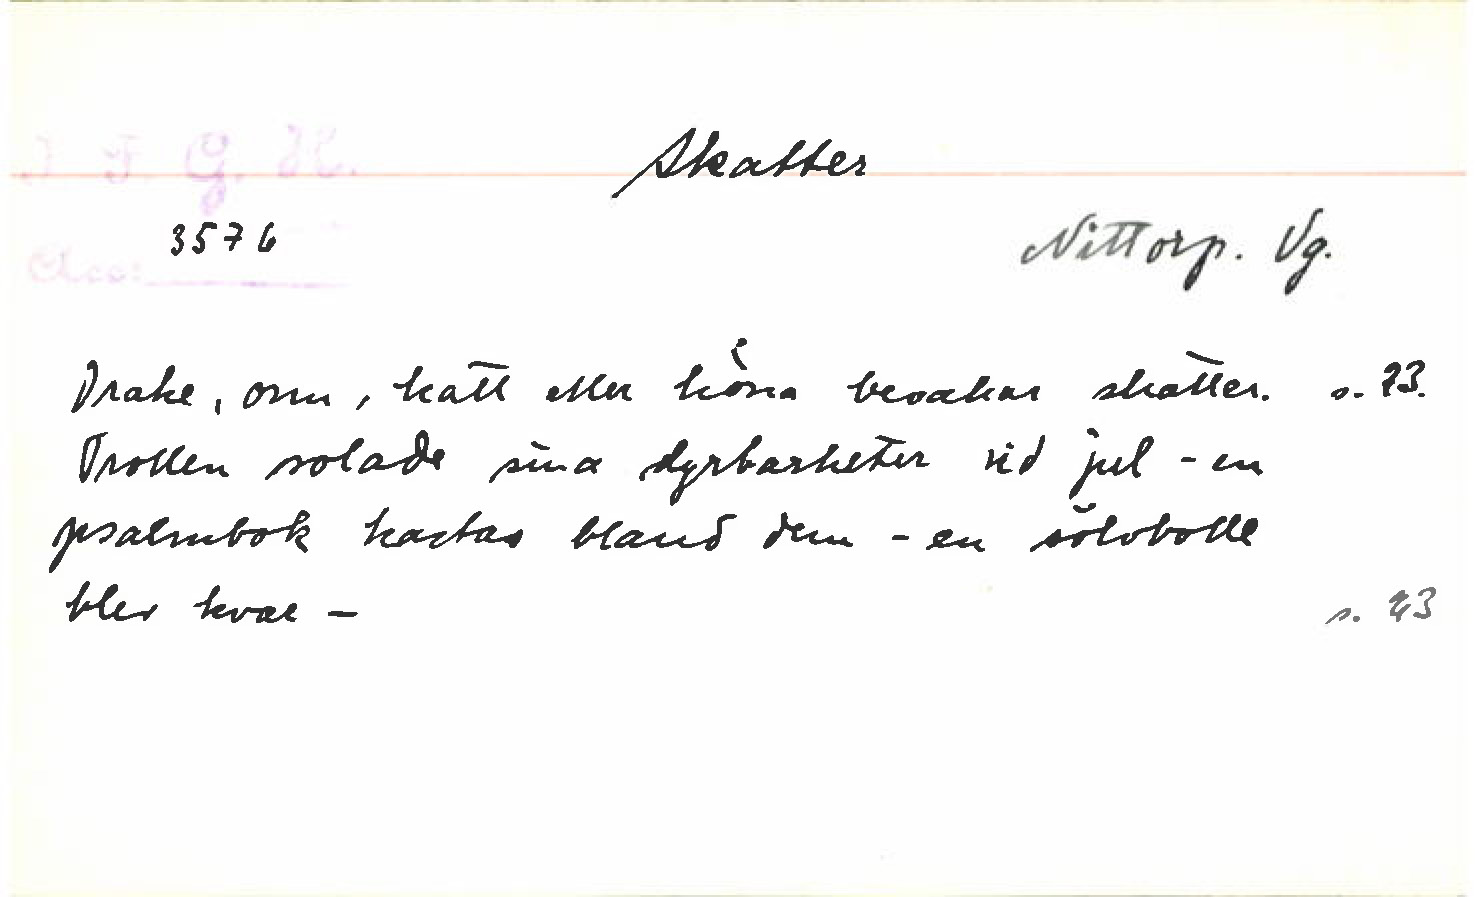 I F. G. H.
Skatter
3576
Acc:
Nittorp. Vg.
Drake, orm, katt eller höna bevakar skatter. s. 23.
Trollen solade sina dyrbarheter vid jul - en
psalmbok kastas bland dem - en sölvbolle
blev kvar - s. 23